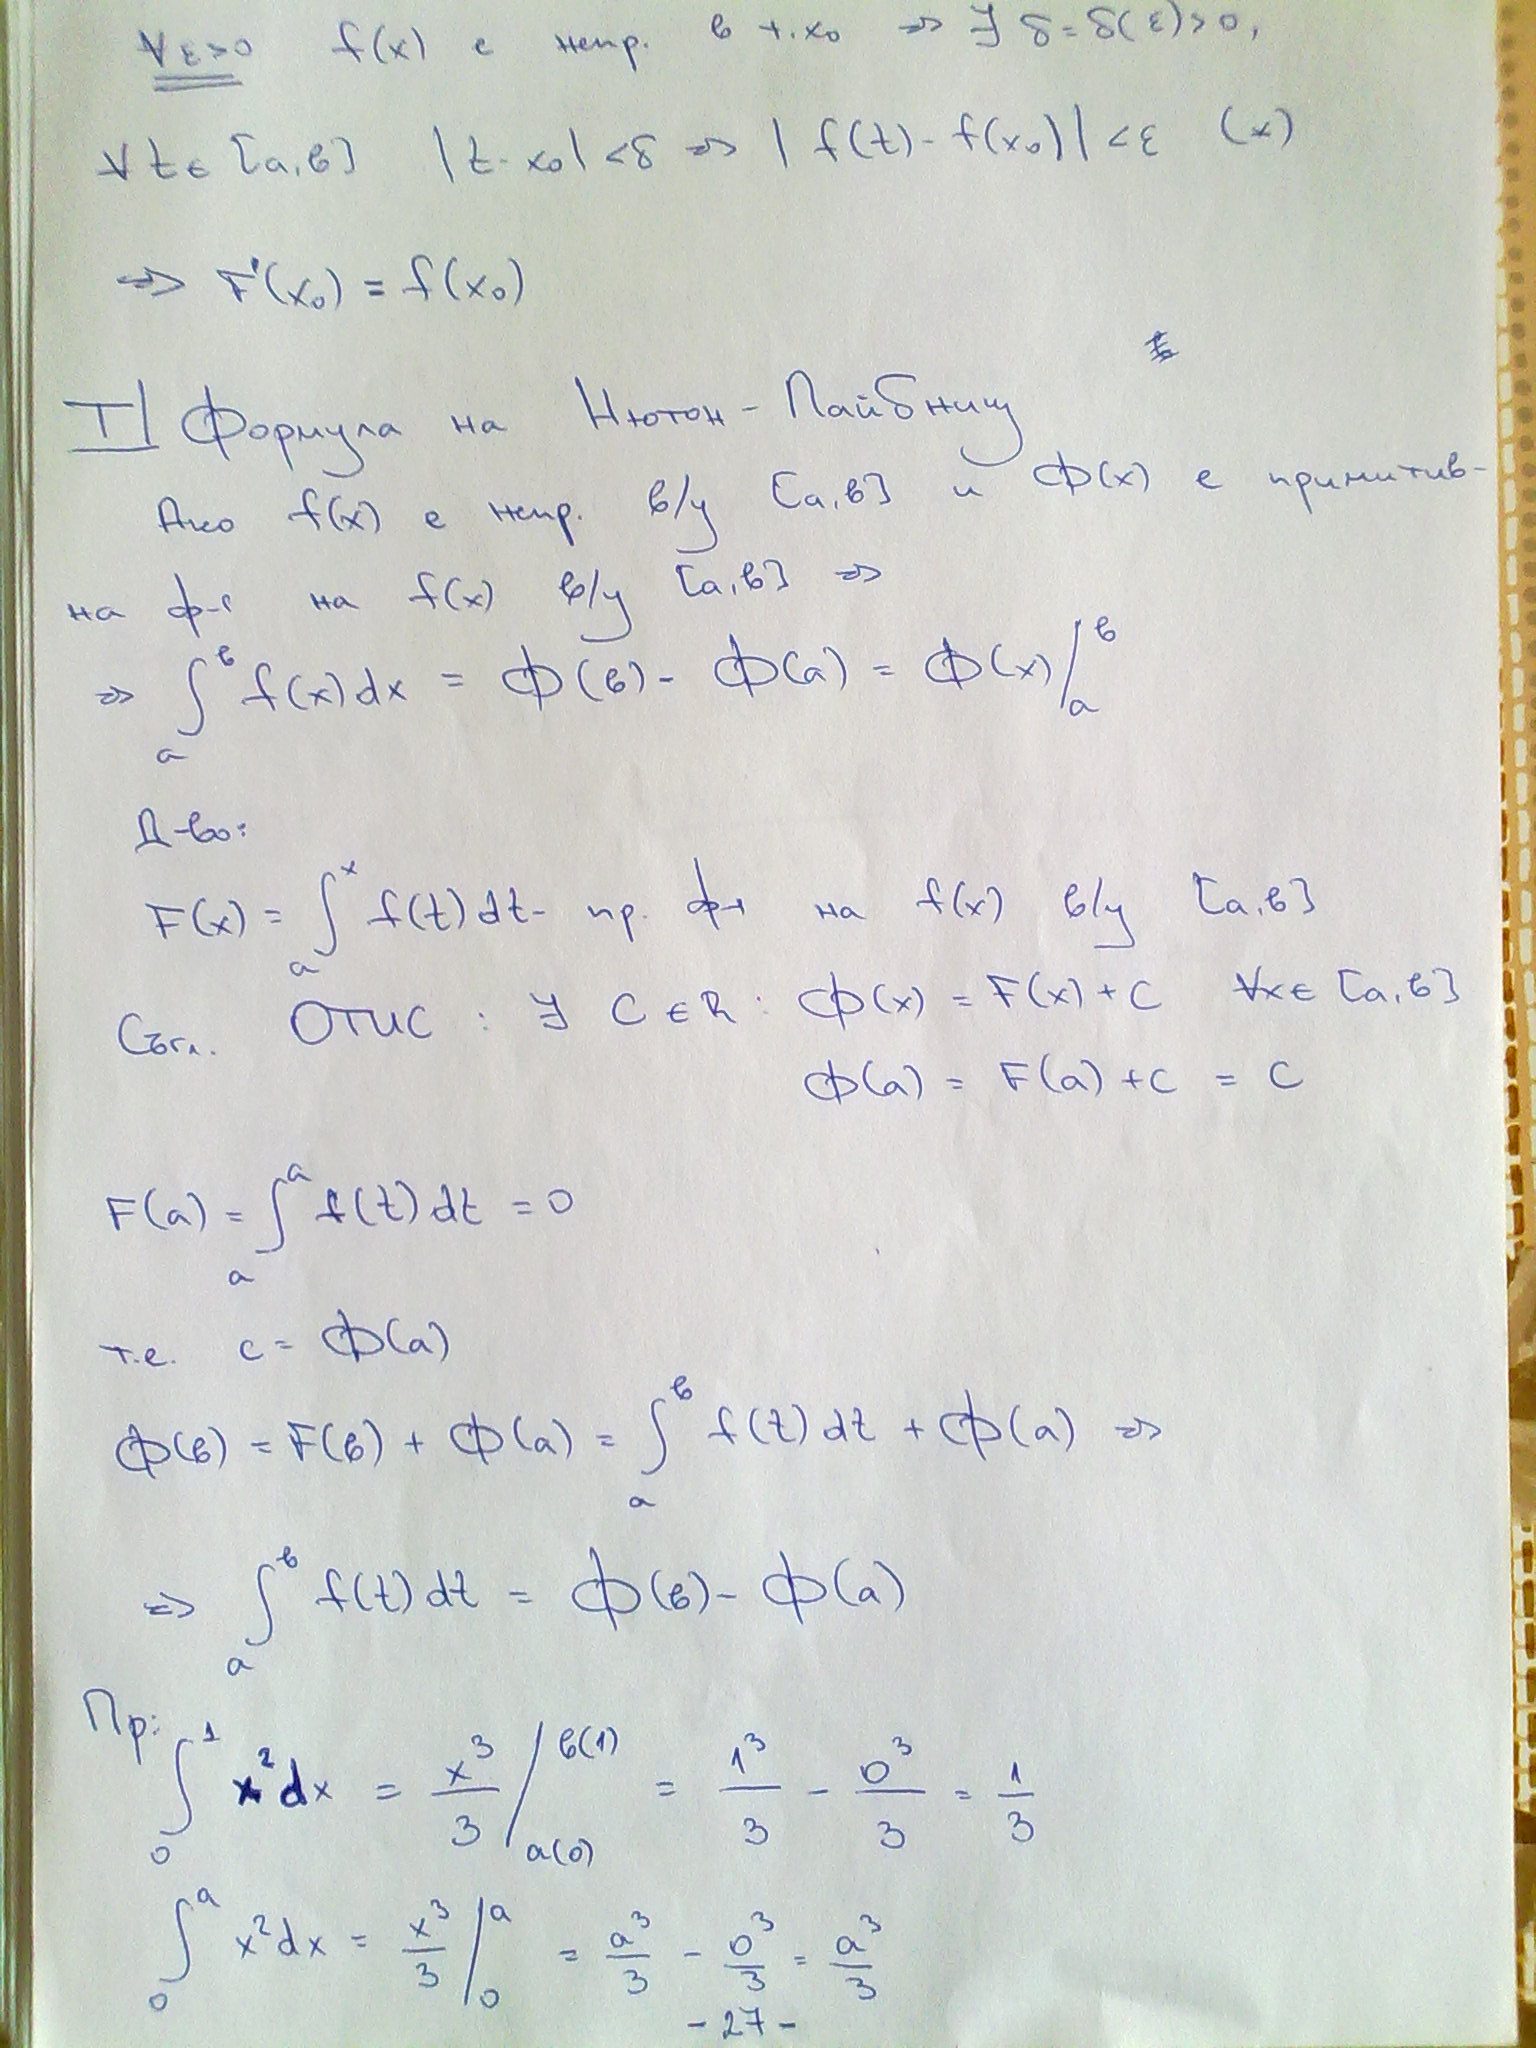 ∀ε>0 f(x) е непр. в т.x₀ => ∃ δ=δ(ε)>0,
∀t∈[a,в] |t-x₀|<δ => |f(t)-f(x₀)|<ε (x)
=> F'(x₀) = f(x₀)
T| Формула на Нютон-Лайбниц
Ако f(x) е непр. в/у [a,в] и Ф(x) е примитив-
на ф-я на f(x) в/у [a,в] =>
=> ∫ₐᵇ f(x)dx = Ф(в) - Ф(a) = Ф(x)/ₐᵇ
Д-во:
F(x) = ∫ₐˣ f(t)dt - пр. ф-я на f(x) в/у [a,в]
Съгл. ОТИС : ∃ C∈R : Ф(x) = F(x)+C ∀x∈[a,в]
Ф(a) = F(a)+C = C
F(a) = ∫ₐᵃ f(t)dt = 0
т.е. c = Ф(a)
Ф(в) = F(в) + Ф(a) = ∫ₐᵇ f(t)dt + Ф(a) =>
=> ∫ₐᵇ f(t)dt = Ф(в) - Ф(a)
Пр:
∫₀¹ x²dx = x³/3 /в(1) a(0) = 1³/3 - 0³/3 = 1/3
∫₀ᵃ x²dx = x³/3 /₀ᵃ = a³/3 - 0³/3 = a³/3
- 27 -